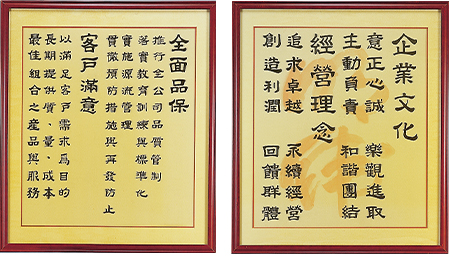 企業文化
意正心誠 樂觀進取
主動負責 和諧團結
經營理念
追求卓越 永續經營
創造利潤 回饋群體
全面品保
推行全公司品質管制
落實教育訓練與標準化
實施源流管理
貫徹預防措施與再發防止
客戶滿意
以滿足客戶需求為目的
長期提供質、量、成本
最佳組合之產品與服務